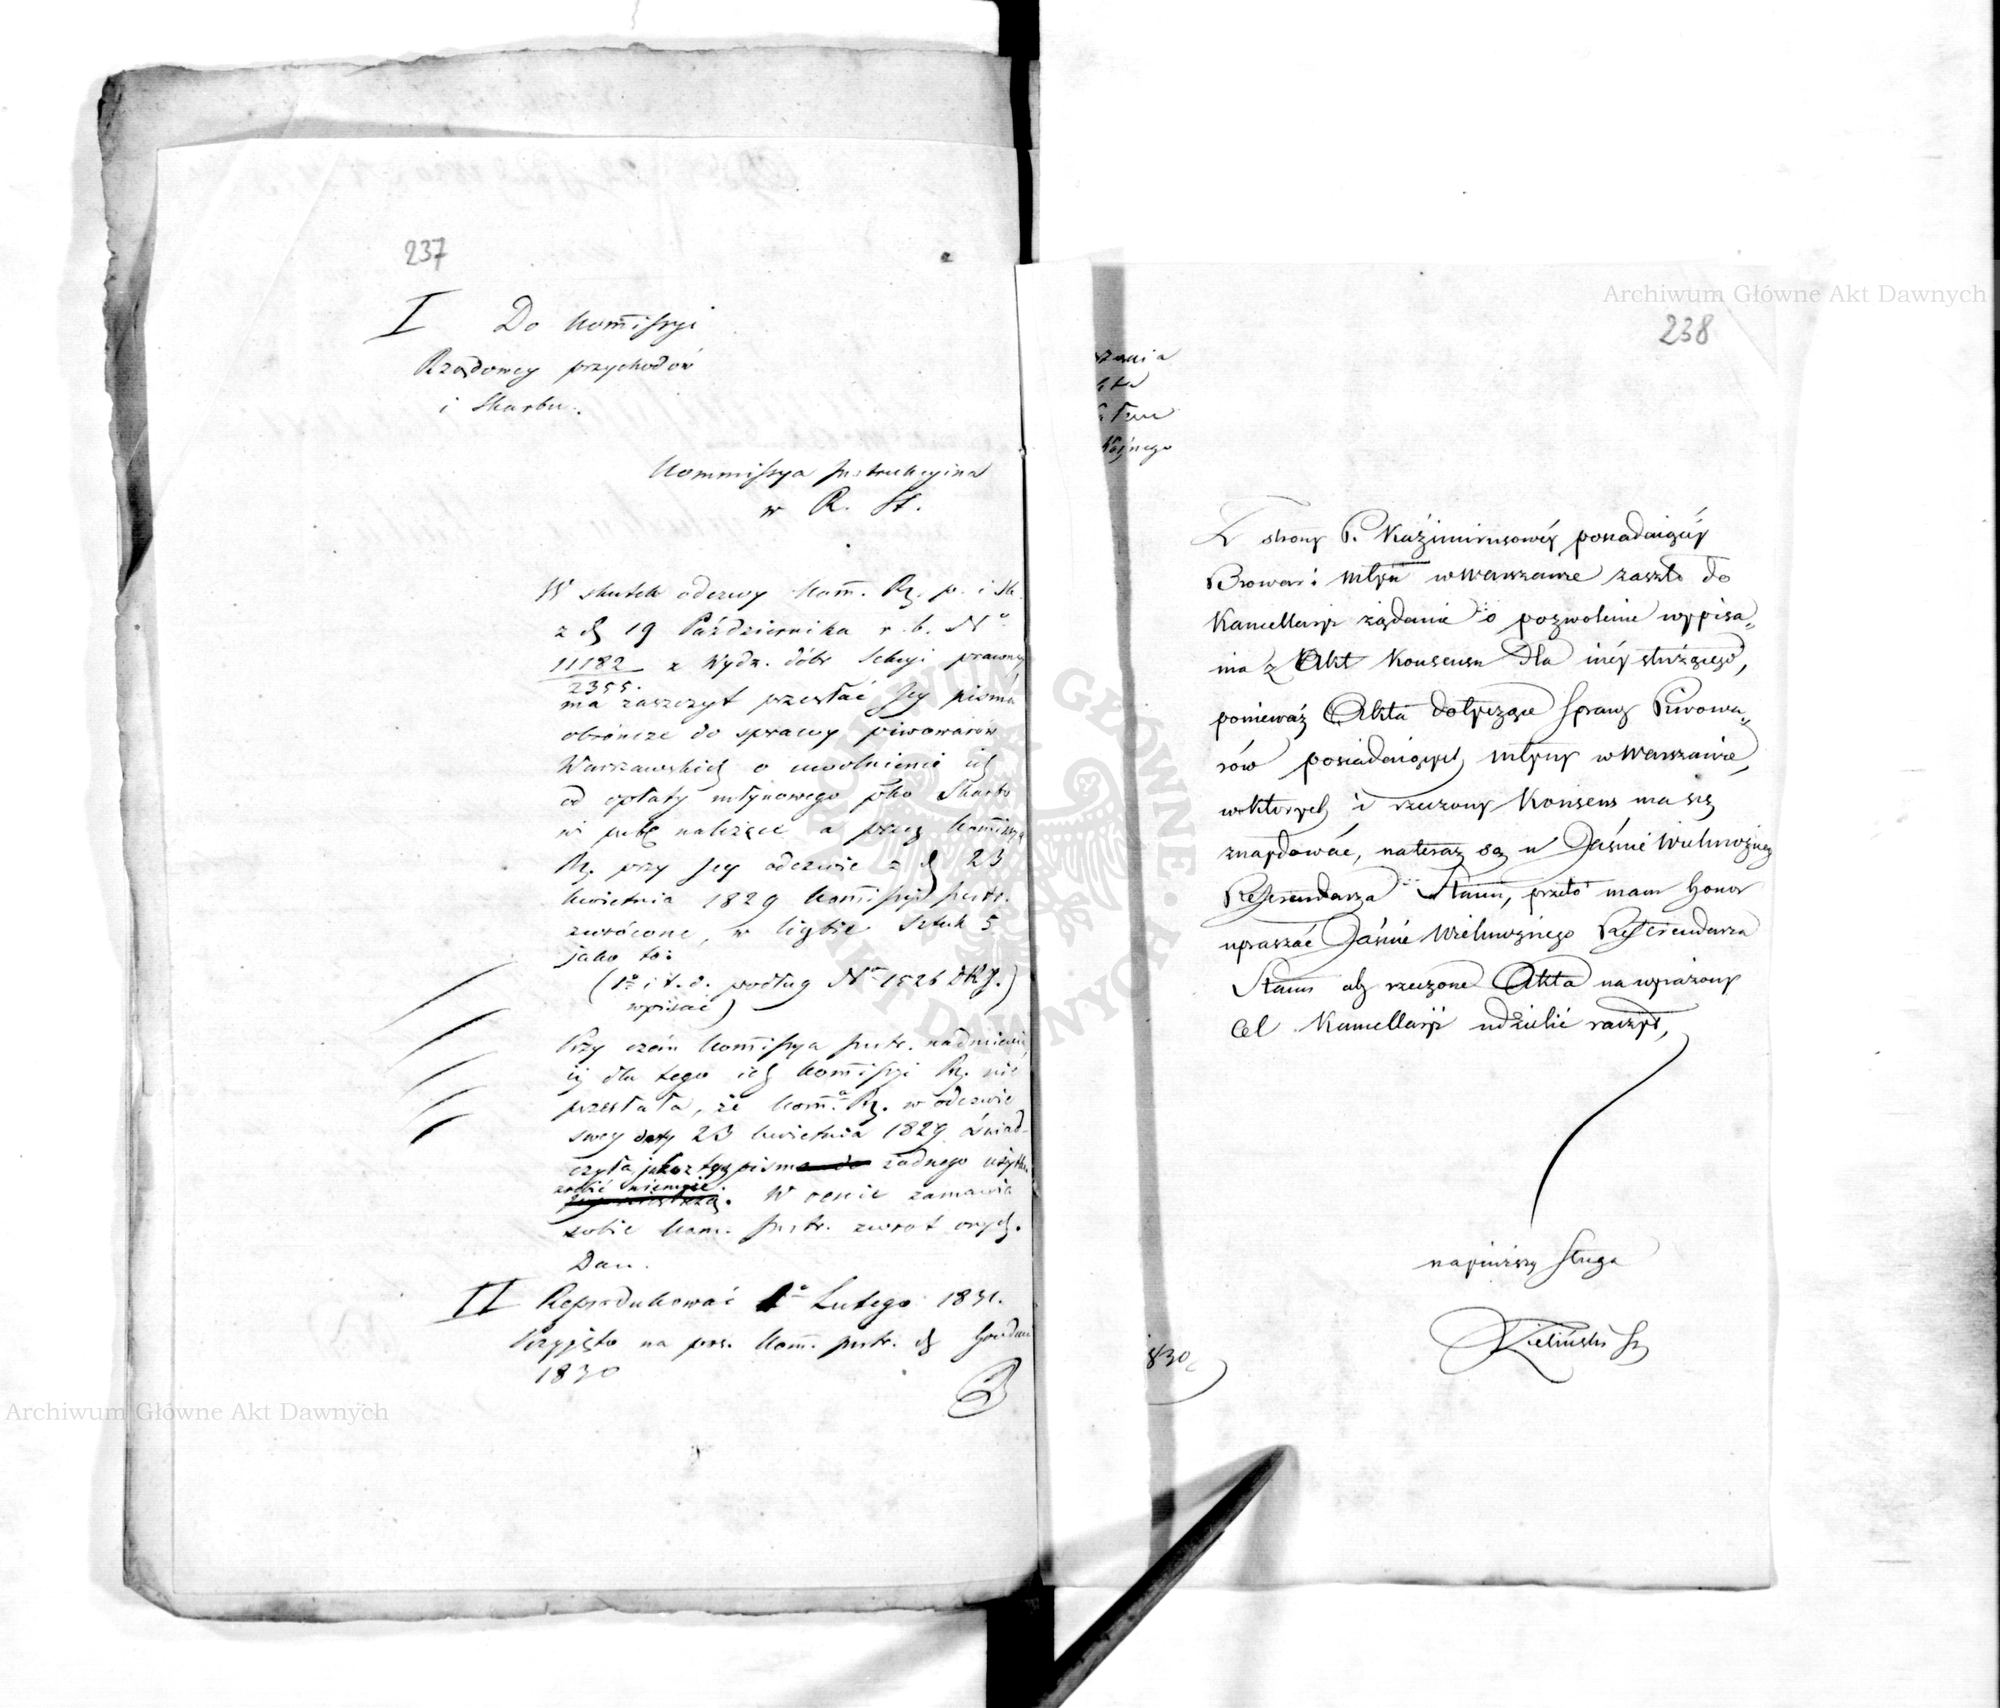 237
I Do Kommissyi
Rządowey przychodów
i Skarbu.
Kommissya Instrukcyina
w R. St.
W skutek odezwy Kom. Rz. p. i Sk.
z d 19 Października r. b. No
11182 z Wydz. dobr Sekcyi prawney
2355.
ma zaszczyt przesłać Jey pisma
obrończe do sprawy piwowarów
Warszawskich o uwolnienie ich
od opłaty młynowego
należące a przez Kommissyą
Rz. przy Jey odezwie z d 23
kwietnia 1829 Kommissyi Instr.
zwrócone, w liczbie Sztuk 5
jako to:
(1o i t. d. podług No 1526 DKJ.)
wpisać)
Przy czém Kommissya Instr. nadmienia
iż dla tego ich Kommissyi Rz. nie
przesłała, że Komma Rz. w odezwie
swey daty 23 kwietnia 1829 oświad-
czyła, pisma żadnego użytku
zrobić niemoże. W cenie zamawia
sobie Kom. Instr. zwrot
Dan.
II Reprodukować 1o Lutego 1831.
Przyjęto na pos. Kom. Instr. d Grudnia
1830
Archiwum Główne Akt Dawnych
Archiwum Główne Akt Dawnych
238
Z strony P. Kaźimirusowéy posiadaiącéy
Browar i młyn w Warszawie zaszło do
Kancellaryi żądanie o pozwolenie wypisa„
nia z Akt Konsensu dla niéy służącego,
ponieważ Akta dotyczące sprawy Piwowa„
rów posiadaiących młyny w Warszawie,
w których i rzeczony Konsens ma się
znaydować, na teraz są u Jaśnie Wielmożnego
Referendarza Stanu, przeto mam honor
upraszać Jaśnie Wielmożnego Referendarza
Stanu aby rzeczone Akta na wyrażony
Cel Kancellaryi udzielić raczył,
nayniższy Sługa
Zieliński
830
ARCHIWUM GŁÓWNE AKT DAWNYCH